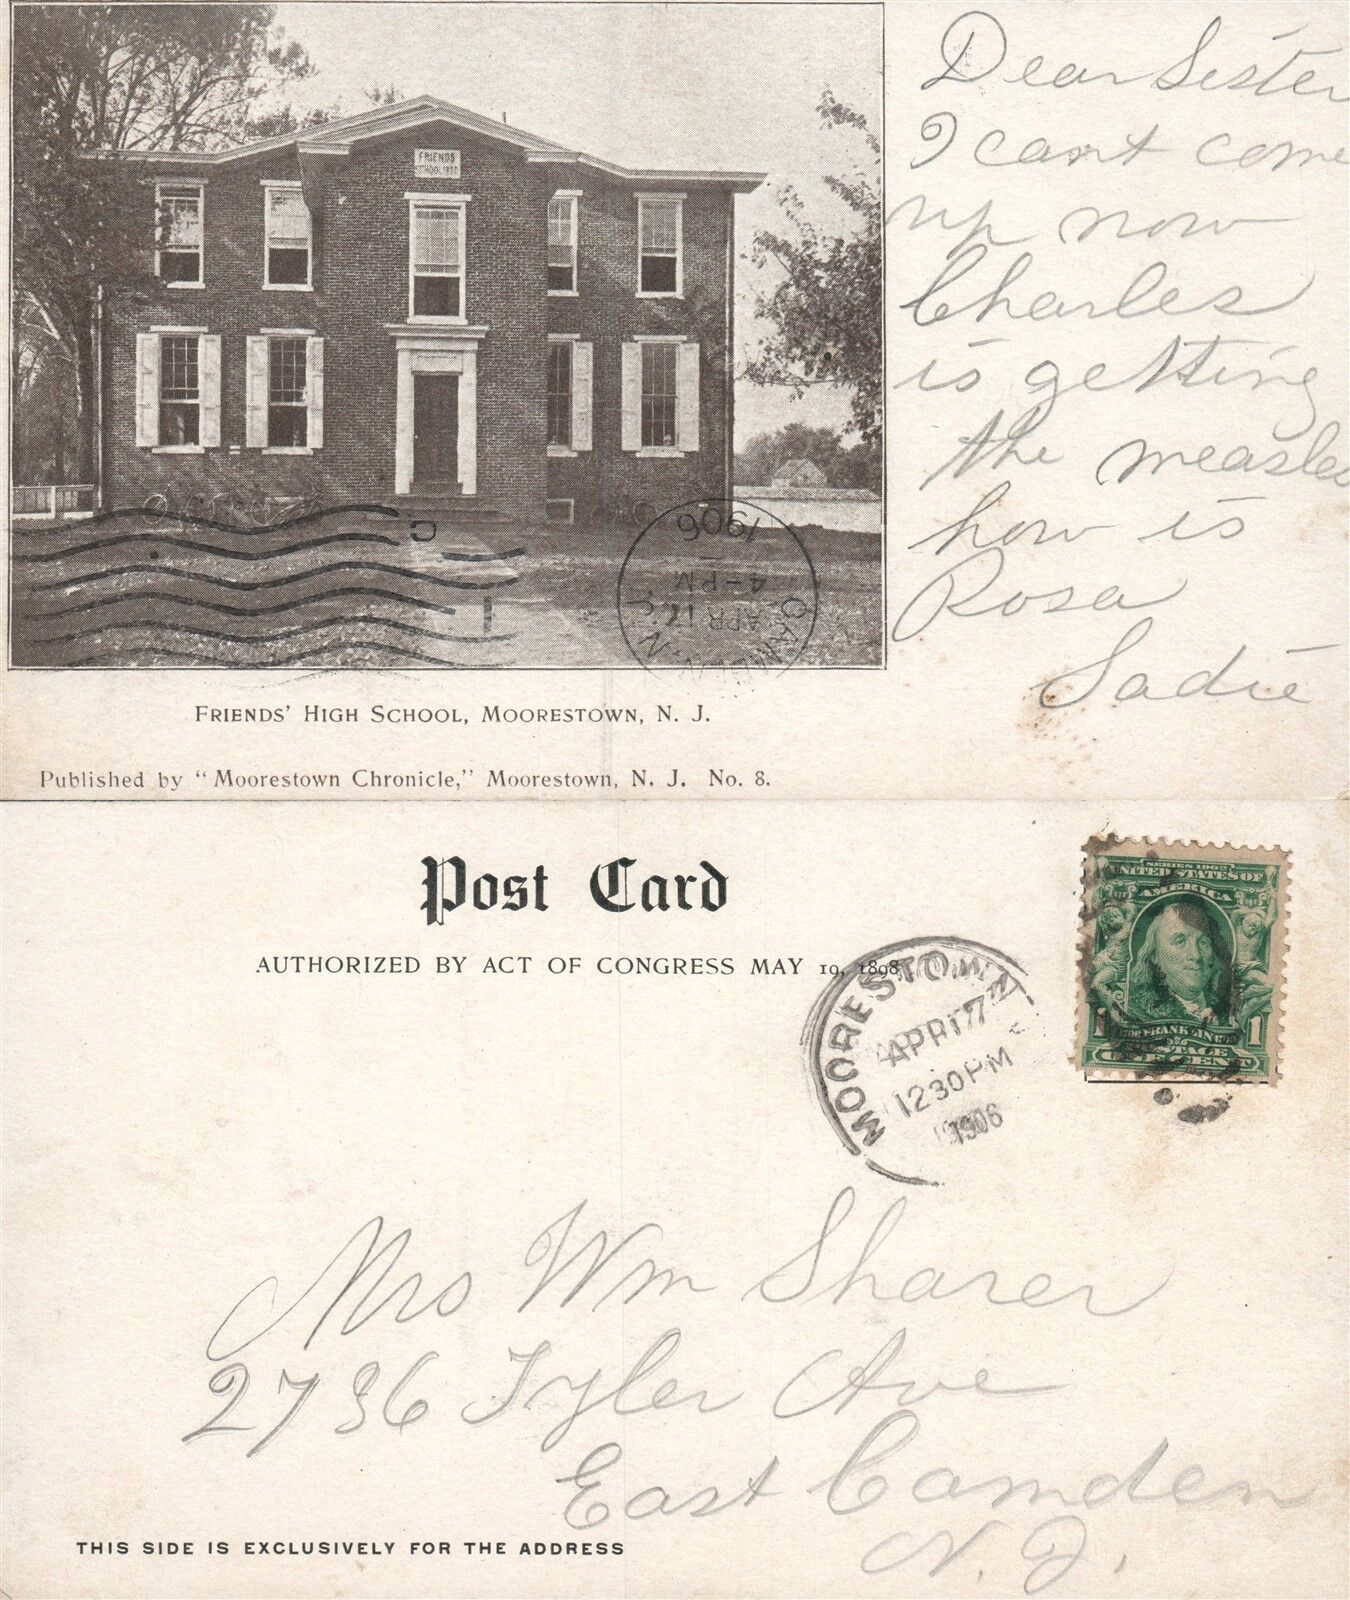 FRIENDS
Dear Sister
I cant come
up now
Charles
is getting
the measles
how is
Rosa
Sadie
1906
4-PM
APR 17
CAMDEN, N.J.
FRIENDS' HIGH SCHOOL, MOORESTOWN, N. J.
Published by "Moorestown Chronicle," Moorestown, N. J. No. 8.
Post Card
AUTHORIZED BY ACT OF CONGRESS MAY 19, 1898
SERIES 1902
UNITED STATES OF
AMERICA
FRANKLIN
POSTAGE
1 1
ONE CENT
MOORESTOWN
APR 17
1230PM
1906
Mrs Wm Sharer
2736 Tyler Ave
East Camden
N. J.
THIS SIDE IS EXCLUSIVELY FOR THE ADDRESS